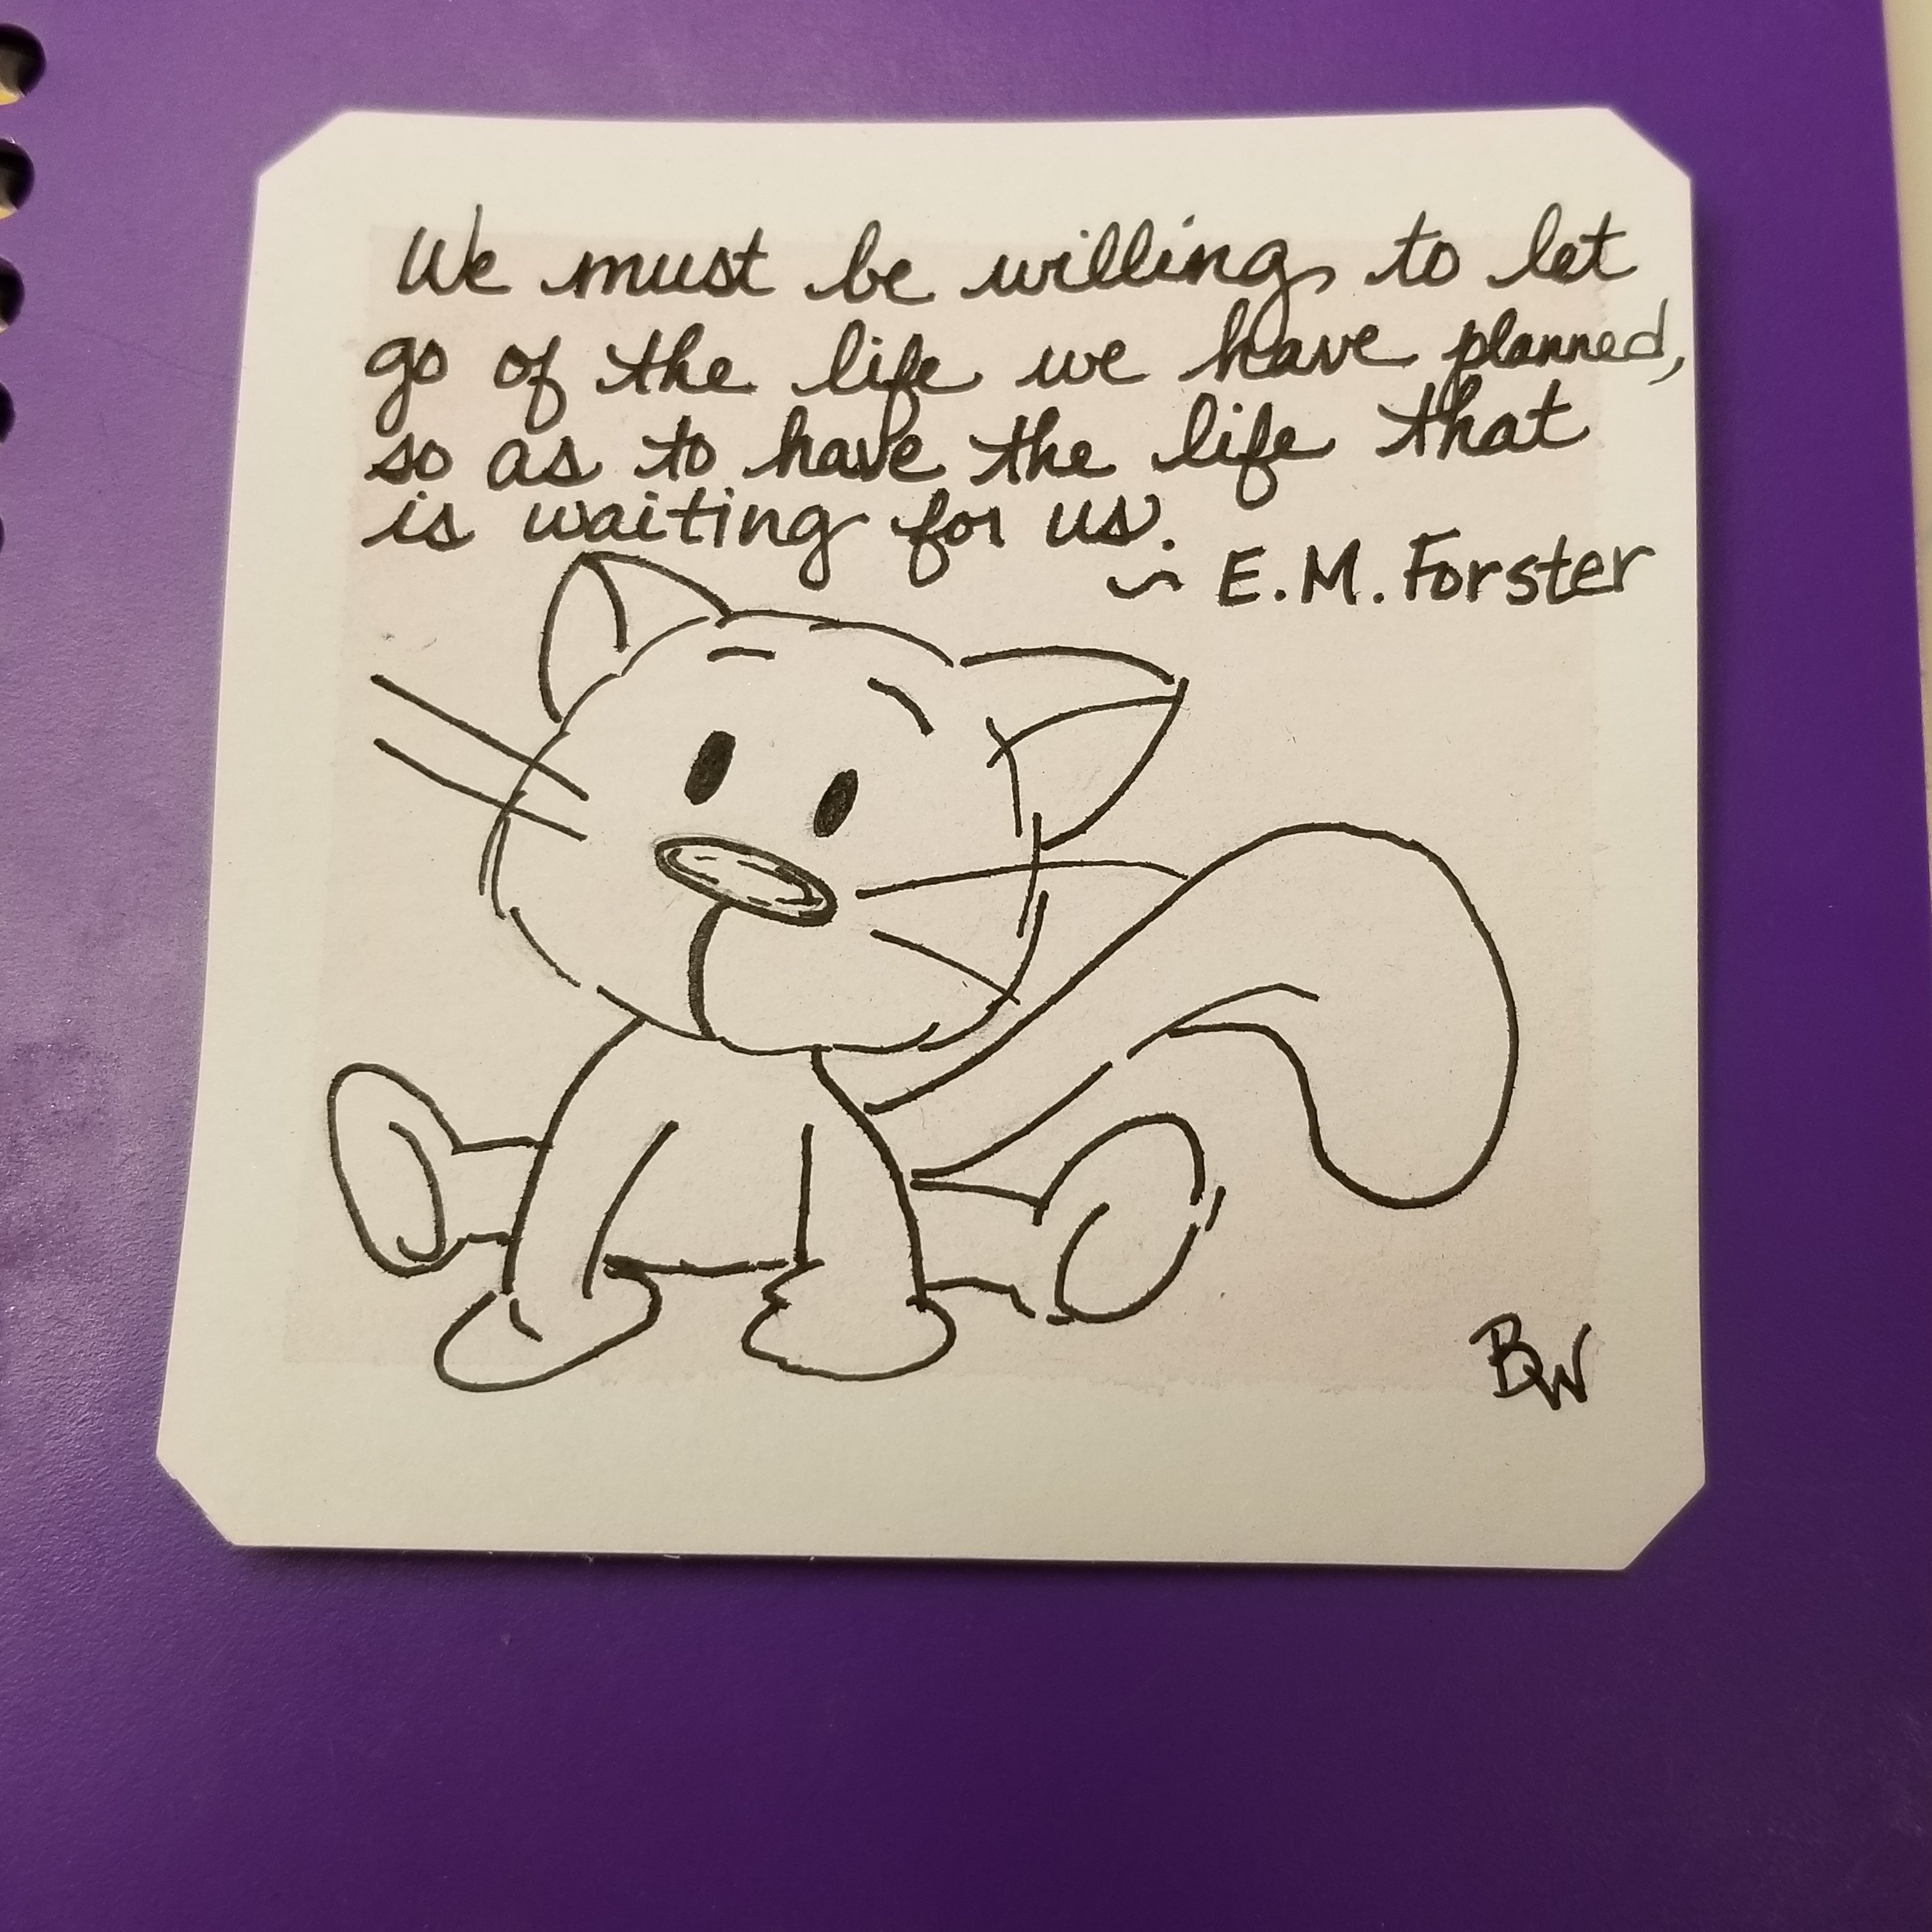 We must be willing to let
go of the life we have planned,
so as to have the life that
is waiting for us.
~ E.M. Forster
BW